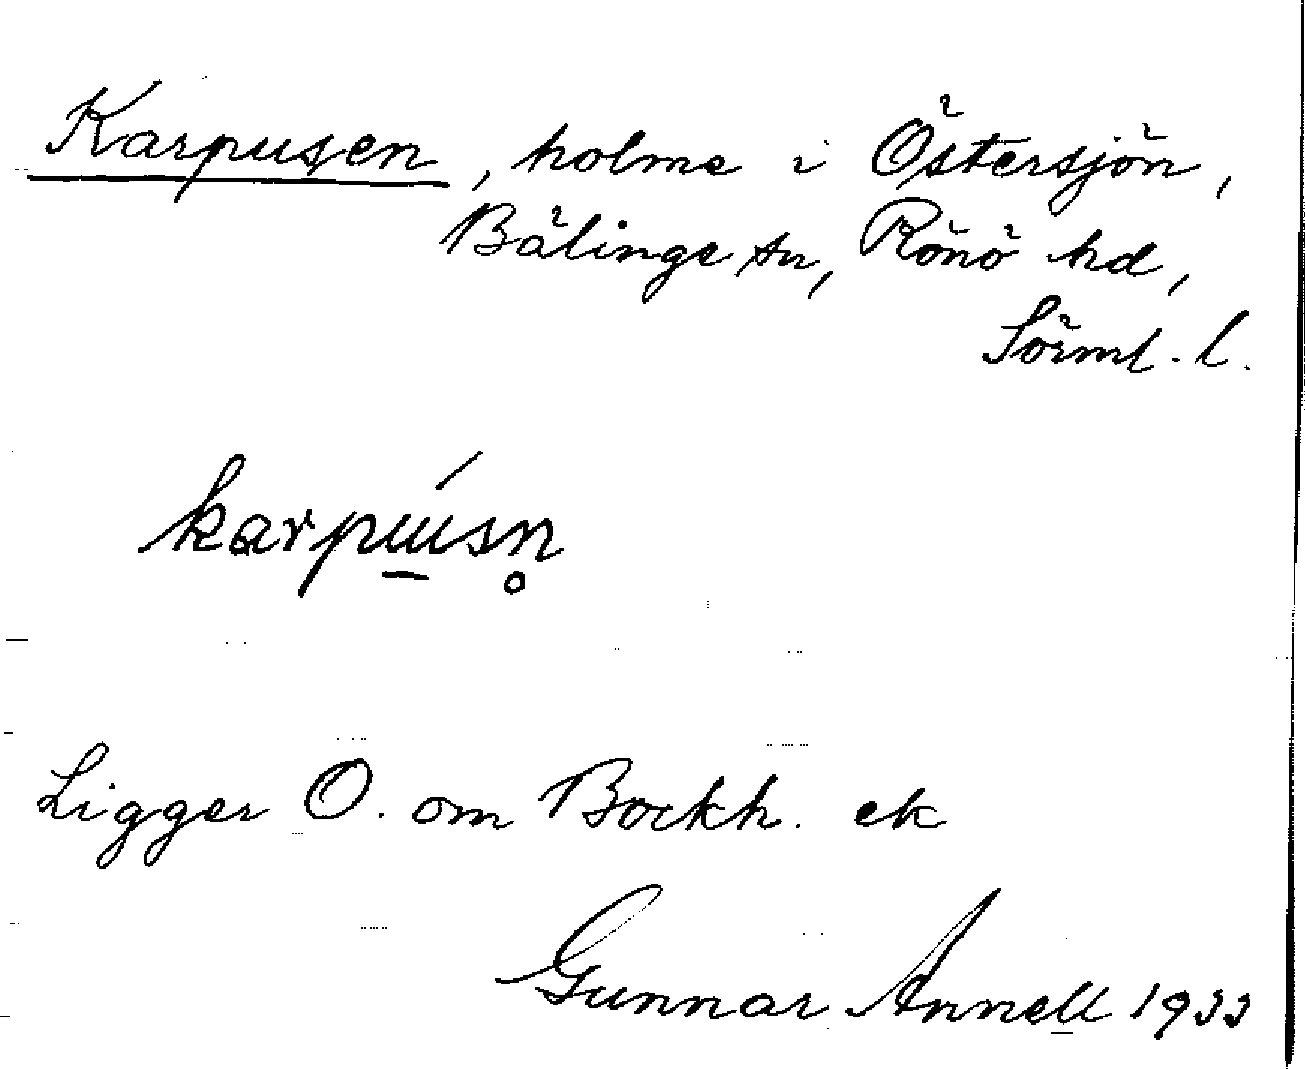 Karpusen, holme i Östersjön,
Bälinge sn, Rönö hd,
Sörml. l.
karpúsn̥
Ligger O. om Bockh. ek
Gunnar Annell 1933